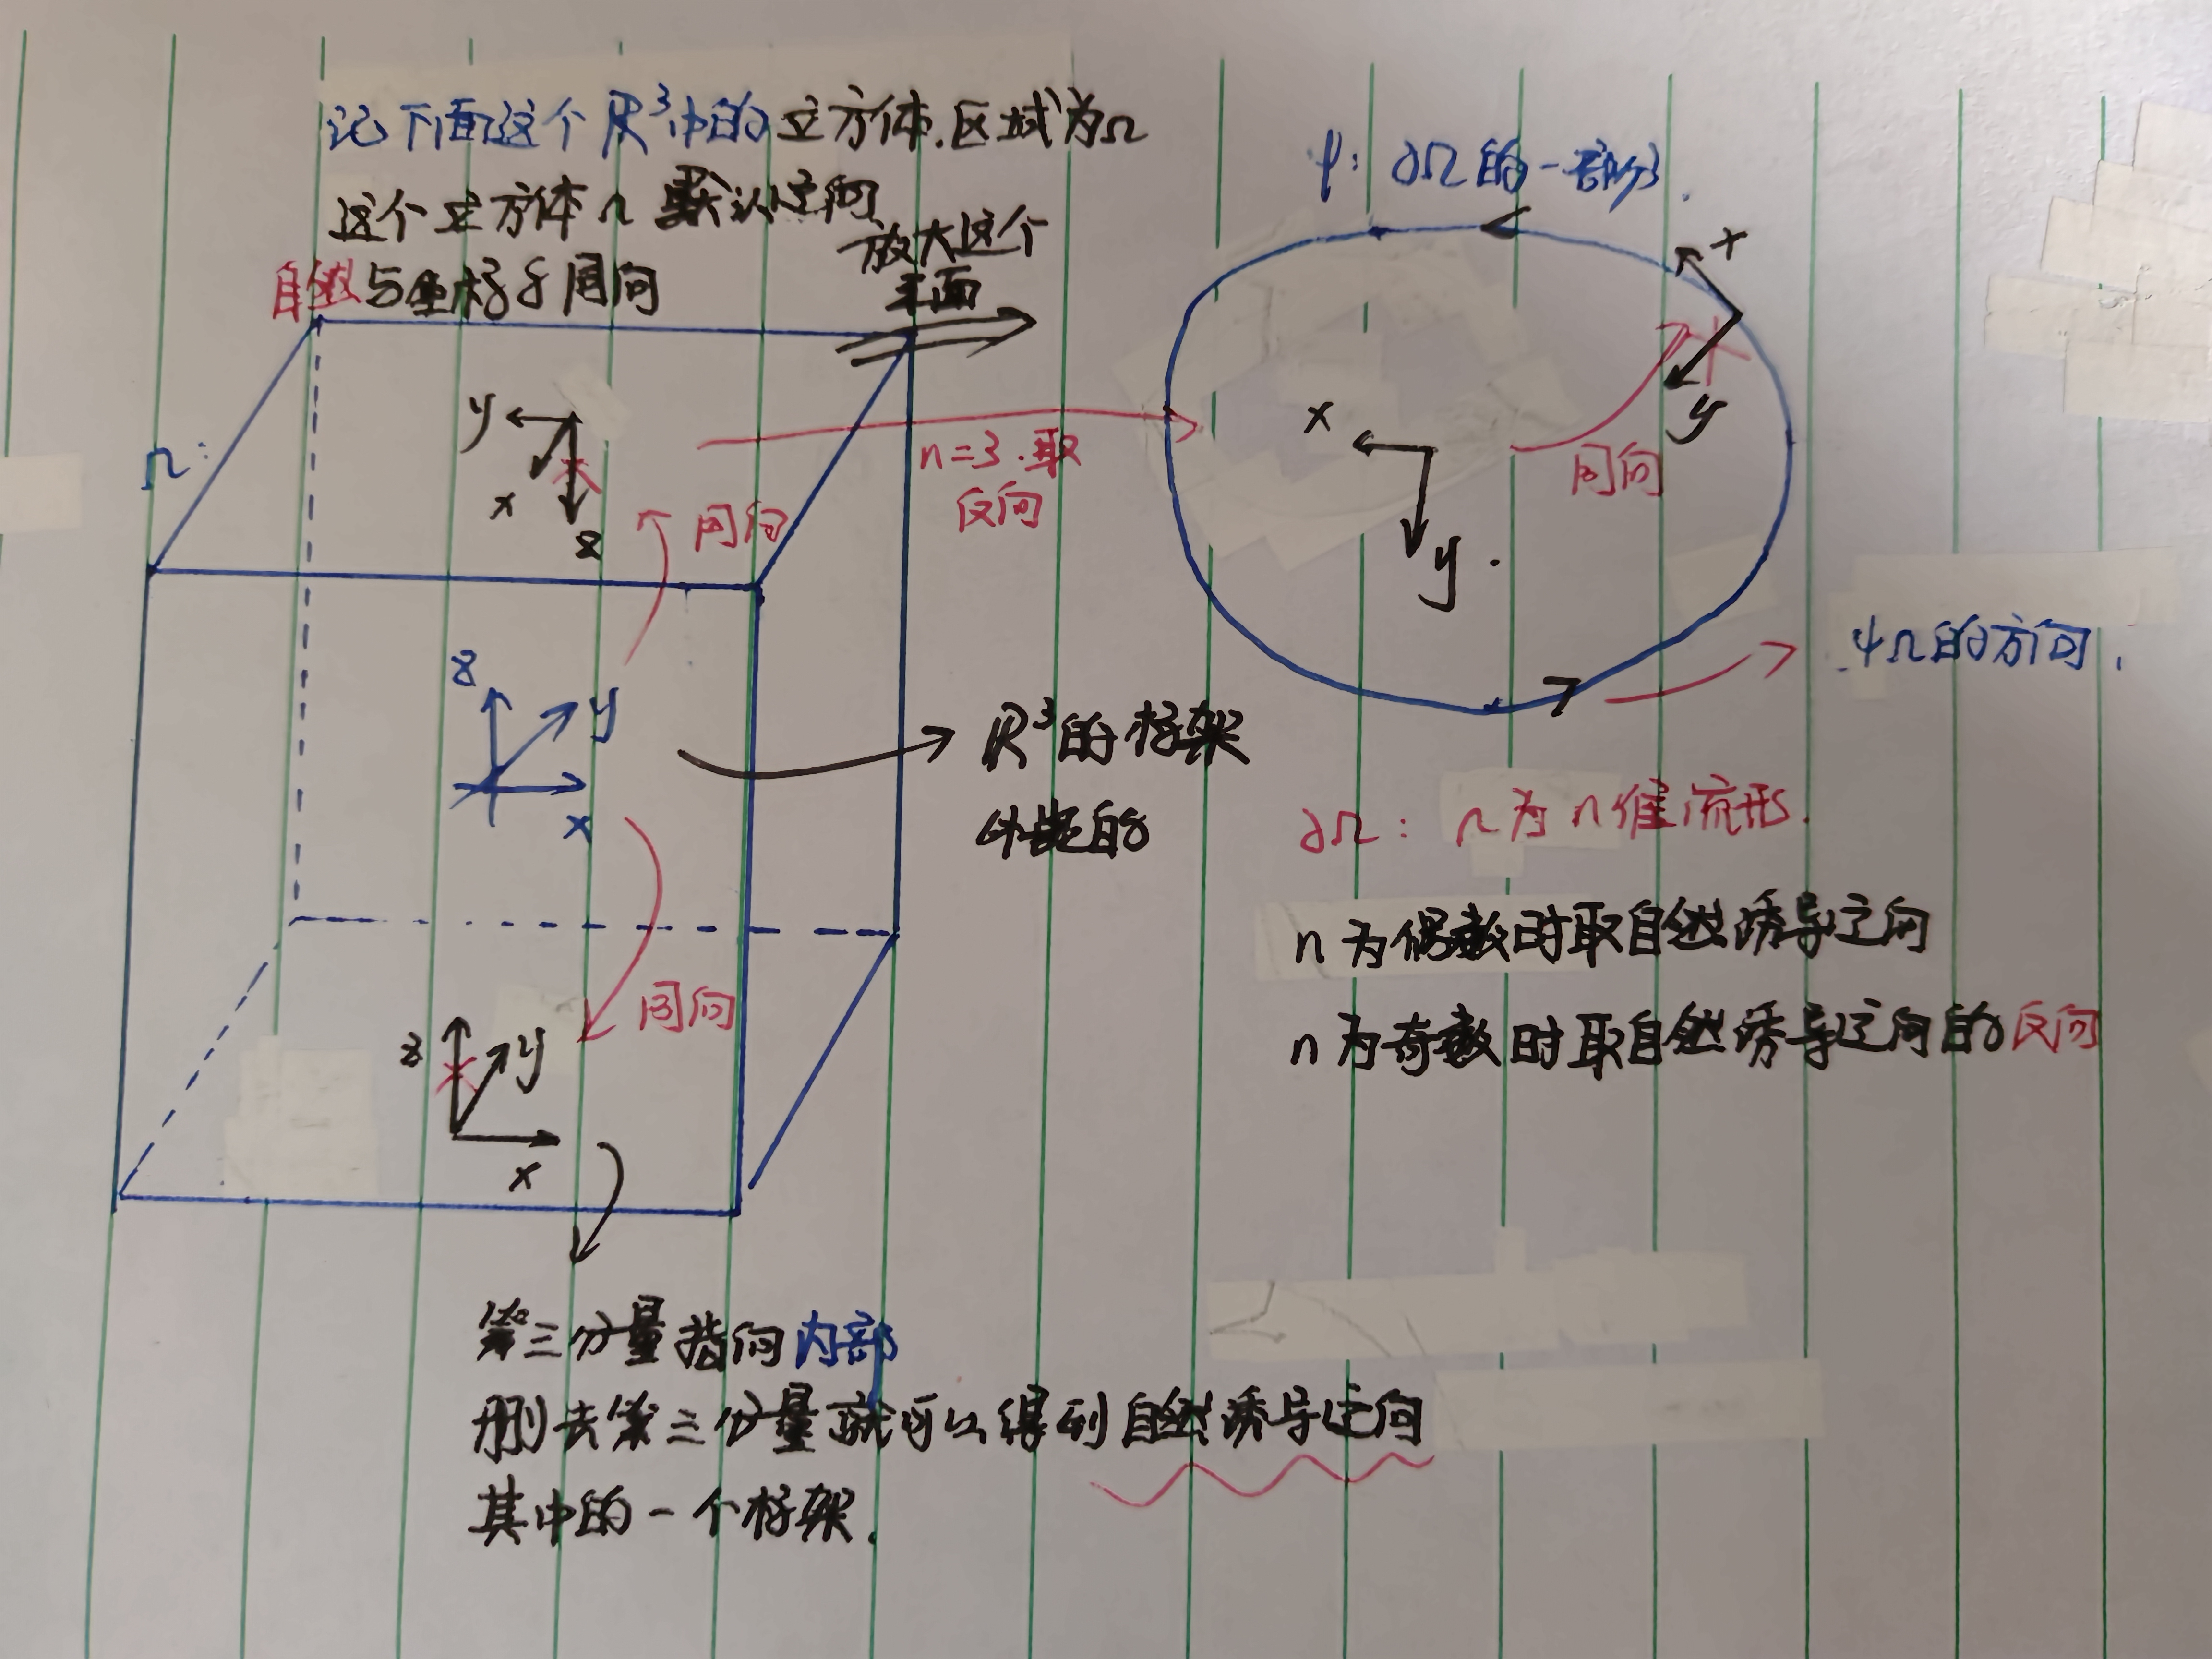 记下面这个 R³中的立方体区域为Ω
这个立方体Ω默认定向
自然与坐标系同向
放大这个
平面
Ω:
y
x
z
同向
n=3.取
反向
z
y
x
R³的标架
同向
z
y
x
第三分量指向内部
删去第三分量就可以得到自然诱导定向
其中的一个标架.
ψ: ∂Ω的一部分.
x
y
同向
x
y.
ψΩ的方向.
∂Ω: Ω为n维流形.
n为偶数时取自然诱导定向
n为奇数时取自然诱导定向的反向